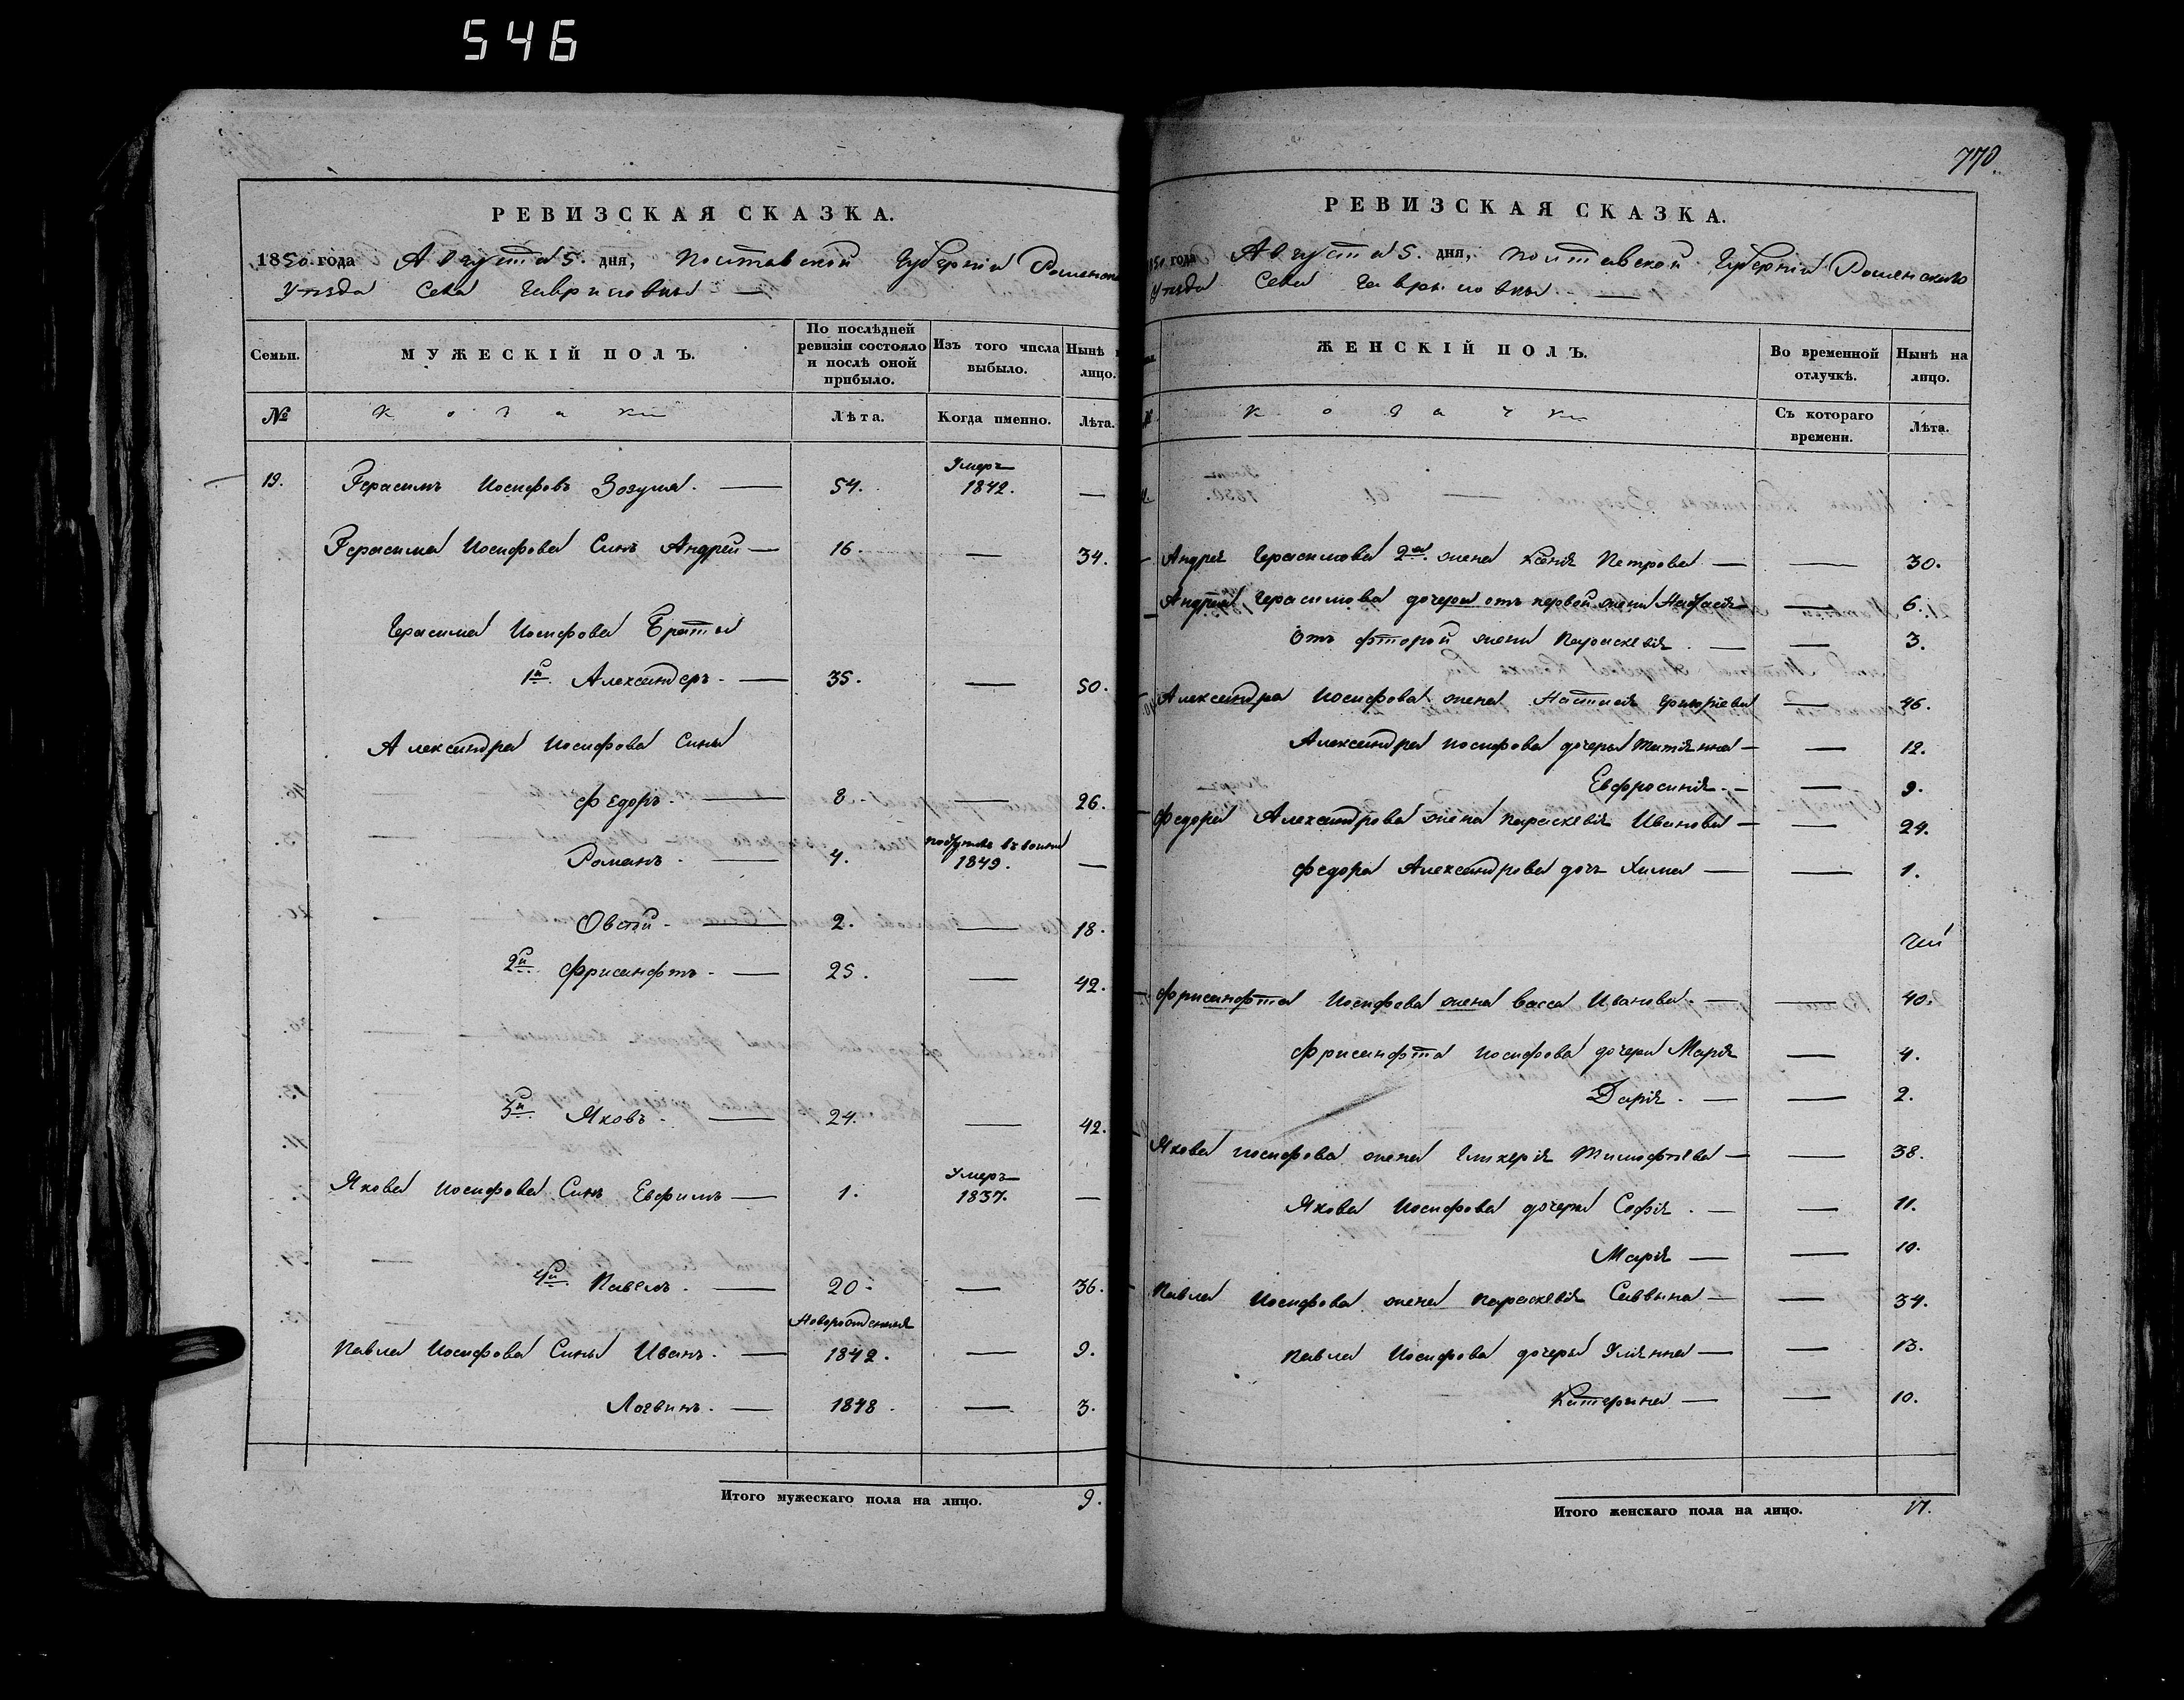 546
РЕВИЗСКАЯ СКАЗКА.
1850 года Августа 5. дня, Полтавской Губерніи Роменск
Уѣзда Села Гавриловки —
Семьи.
МУЖЕСКІЙ ПОЛЪ.
По послѣдней ревизіи состояло и послѣ оной прибыло.
Изъ того числа выбыло.
Нынѣ на лицо.
№
Козаки
Лѣта.
Когда именно.
Лѣта.
19. Герасимъ Иосифовъ Зозуля. — 54. Умеръ 1842. —
Герасима Иосифова Синъ Андрей — 16. — 34.
Герасима Иосифова Браты
1й Александеръ. — 35. — 50.
Александра Иосифова Сины
Федоръ. — 8. — 26.
Романъ. — 4. 1849. —
Овстӣй. — 2. — 18.
2й Фрисанфтъ. — 25. — 42.
3й Яковъ. — 24. — 42.
Якова Иосифова Синъ Евфимъ — 1. Умеръ 1837. —
4й Павелъ. — 20. — 36.
Новорожденныя
Павла Иосифова Сины Иванъ. — 1842. — 9.
Логвинъ. — 1848. — 3.
Итого мужескаго пола на лицо. 9.
770.
РЕВИЗСКАЯ СКАЗКА.
150 года Августа 5. дня, Полтавской Губерніи Роменскаго
Уѣзда Села Гавриловки. —
ЖЕНСКІЙ ПОЛЪ.
Во временной отлучкѣ.
Нынѣ на лицо.
Козачки
Съ котораго времени.
Лѣта.
Андрея Герасимова 2я жена Ксенія Петрова — — 30.
Андрея Герасимова дочери отъ первой жены Настасія — 6.
Отъ фторой жены Параскевія. — — 3.
Александра Иосифова жена Настасія Григоріева — 46.
Александра Иосифова дочери Татіянна — — 12.
Евфросинія. — — 9.
Федора Александрова жена Параскевія Иванова — — 24.
Федора Александрова дочь Хима — — 1.
Фрисанфта Иосифова жена Васса Иванова. — — 40.
Фрисанфта Иосифова дочери Марія — 4.
Дарія. — — 2.
Якова Иосифова жена Гликерія Тимофѣева — — 38.
Якова Иосифова дочери Софія. — — 11.
Марія — — 10.
Павла Иосифова жена Параскевія Саввина — — 34.
Павла Иосифова дочери Уліянна — — 13.
Катерина — — 10.
Итого женскаго пола на лицо. 17.